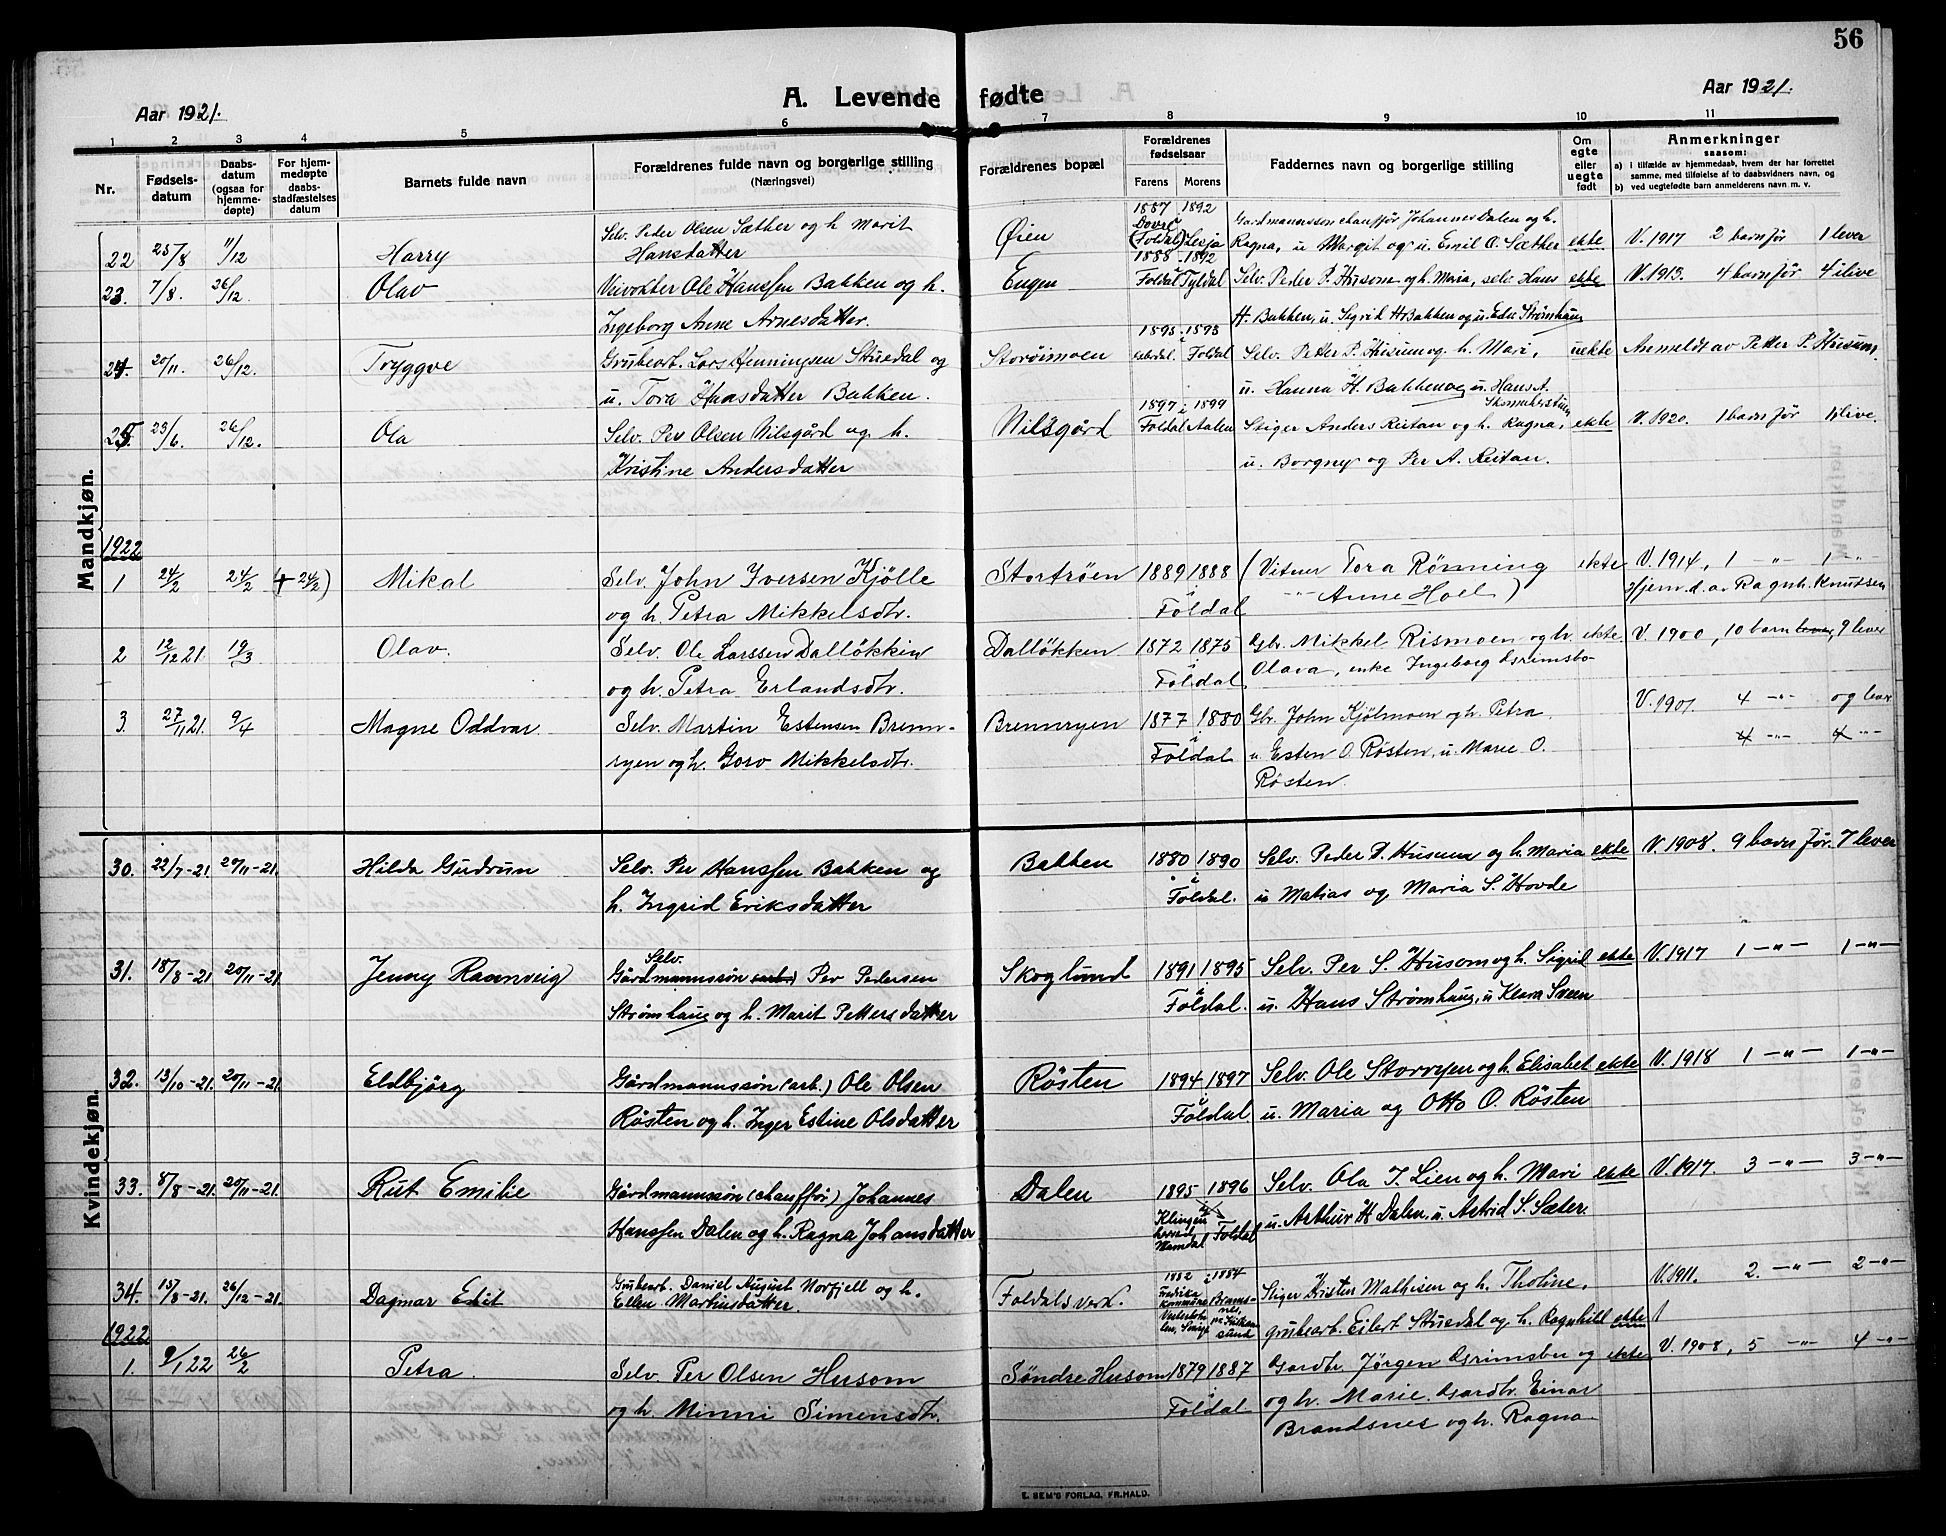 56
Aar 1921.
A. Levende fødte
Aar 1921.
1 2 3 4 5 6 7 8 9 10 11
Nr.
Fødselsdatum
Daabsdatum (ogsaa for hjemmedøpte)
For hjemmedøpte daabsstadfæstelses datum
Barnets fulde navn
Forældrenes fulde navn og borgerlige stilling (Næringsvei)
Forældrenes bopæl
Forældrenes fødselsaar
Farens Morens
Faddernes navn og borgerlige stilling
Om egte eller uegte født
Anmerkninger
saasom:
a) i tilfælde av hjemmedaab, hvem der har forrettet samme, med tilføielse af to daabsvidners navn, og
b) ved uegtefødte barn anmelderens navn m. v.
Mandkjøn.
22 25/8 11/12 Harry
Selv. Peder Olsen Sæther og h. Marit
Hansdatter
Øien
1887 1892
Dovre
(Foldal) Lesja
Gardmannsson chauffør Johannes Dalen og h.
Ragna, u. Margit og u. Emil O. Sæther
ekte
V. 1917 2 barn før 1 lever
23. 7/8. 26/12 Olav
Veivokter Ole Hanssen Bakken og h.
Ingeborg Anne Arnesdatter.
Engen
1888 - 1892
Foldal Tyldal
Selv. Peder P. Husom og h. Maria, selv. Hans
H. Bakken, u. Sigrid H Bakken og u. Eder Strømhaug
ekte
V. 1913. 4 barn før 4 i live
24. 20/11. 26/12. Tryggve
Grubearb. Lars Henningsen Stuedal og
u. Tora Hansdatter Bakken.
Storøimoen
Foldal
Selv. Petter P. Husum og h. Mari,
u. Hanna H. Bakken og u. Hans A.
uekte
Anmeldt av Petter P. Husum.
25. 23/6. 26/12. Ola
Selv. Per Olsen Nilsgård og h.
Kristine Andersdatter
Nilsgård
1897 i 1899
Foldal Aalen
Stiger Anders Reitan og h. Ragna,
u. Borgny og Per A. Reitan.
ekte
V. 1920. 1 barn før 1 i live.
1922
1 24/2 24/2 († 24/2) Mikal
Selv. John Iversen Kjølle
og h. Petra Mikkelsdtr.
Stortrøen
1889 1888
i
Foldal
(Vitner Tora Rønning
-"- Anne Hoel)
ekte
V. 1914, 1 -"- 1 -"-
Hjem.d. av Ragnh. Knutsen
2 12/12 21. 19/3 Olav.
Selv. Ole Larssen Dalløkkin
og h. Petra Erlandsdtr.
Dalløkken
1872 1875
i
Foldal
Gbr. Mikkel Rismoen og h.
Olava, enke Ingeborg Grimsbo
ekte
V. 1900, 10 barn lever 9 lever
3. 27/11 21. 9/4 Magne Oddvar
Selv. Martin Estensen Brenn-
ryen og h. Goro Mikkelsdtr.
Brennryen
1877 1880
i
Foldal
Gbr. John Kjølmoen og h. Petra.
u Esten O. Røsten, u. Marie O.
Røsten.
V. 1901 4 -"- og lever
4 -"- 4 -"-
Kvindekjøn.
30. 22/7-21. 20/11-21. Hilda Gudrun
Selv. Per Hanssen Bakken og
h. Ingrid Eriksdatter
Bakken
1880 1890
i
Foldal.
Selv. Peder P. Husum og h. Maria
u Matias og Maria S. Hovde
ekte
V. 1908. 9 barn før. 7 lever
31. 18/8-21 20/11-21. Jenny Raanveig
Selv.
Gårdmannssøn (arb.) Per Pedersen
Strømhaug og h. Marit Pettersdatter
Skoglund
1891 1895
i
Foldal.
Selv. Per S. Husom og h. Sigrid
u. Hans Strømhaug, u Klara Sveen
ekte
V. 1917 1 -"- 1 -"-
32. 13/10-21. 20/11-21. Eldbjørg
Gårdmannssøn (arb.) Ole Olsen
Røsten og h. Inger Estine Olsdatter
Røsten
1894 1897
i
Foldal.
Selv. Ole Storryen og h. Elisabet
u. Maria og Otto O. Røsten
ekte
V. 1918 1 -"- 1 -"-
33. 8/8-21. 20/11-21. Rut Emilie
Gårdmannssøn (chauffør) Johannes
Hanssen Dalen og h. Ragna Johansdatter
Dalen
1895 1896
Klingen
herred
Namdal Foldal
Selv. Ola I. Lien og h. Mari
u. Arthur H Dalen, u. Astrid S. Sæter.
ekte
V. 1917. 3 -"- 3 -"-
34. 15/8-21. 26/12-21. Dagmar Edit
Grubearb. Daniel August Norfjell og h.
Ellen Martinsdatter.
Foldals verk.
1882 i 1884
Fredrika
kommune
Stiger Kristen Mathisen og h. Tholine,
grubearb. Eilert Stuedal og h. Ragnhild
ekte
V. 1911. 2. -"- 2 -"-
1922
1. 9/1 22 26/2 Petra.
Selv. Per Olsen Husom
og h. Minni Simensdtr.
Søndre Husom
1879 1887
i
Foldal
Gardbr. Jørgen Grimsbu og
og h. Marie. Gardbr. Einar
Brandsnes og h. Ragna
ekte
V. 1908, 5 -"- 4 -"-
E. SEM'S FORLAG, FR.HALD.